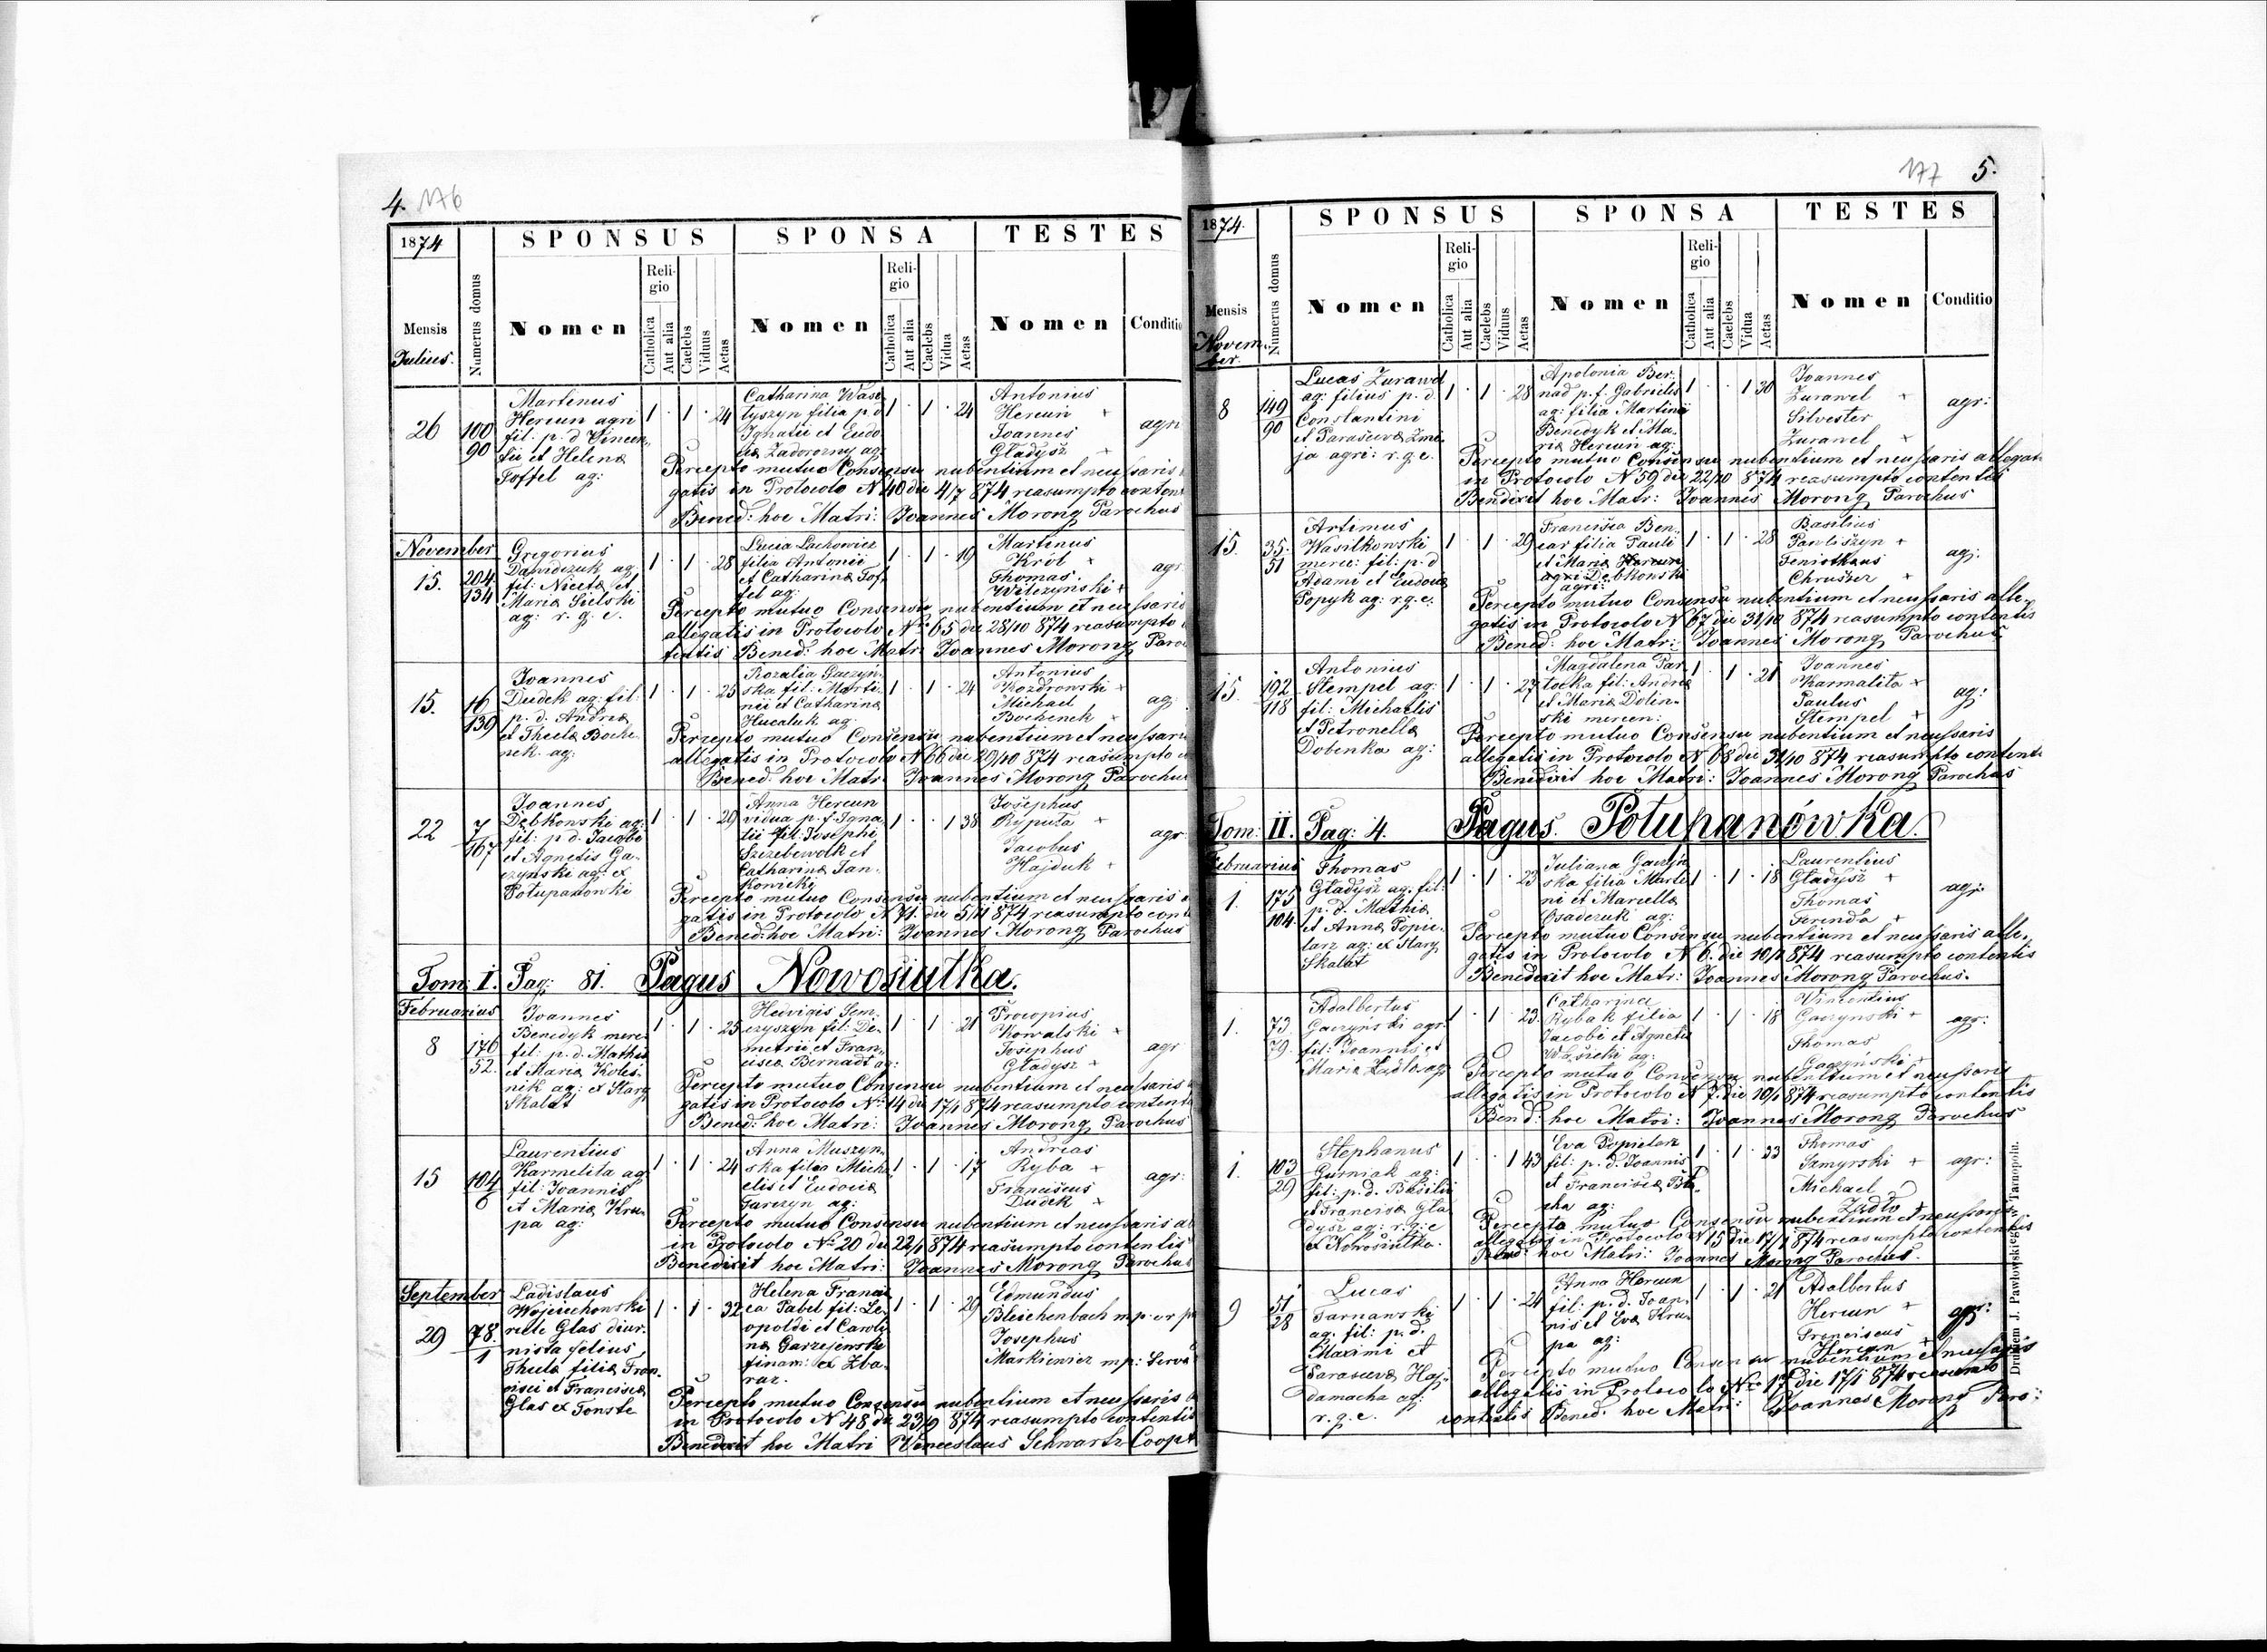 4. 176
1874
SPONSUS SPONSA TESTES
Mensis
Numerus domus
Nomen
Religio
Catholica
Aut alia
Caelebs
Viduus
Aetas
Nomen
Religio
Catholica
Aut alia
Caelebs
Vidua
Aetas
Nomen
Conditio
Julius.
26
100
90
Martinus
Hercun agri
fil: p. d Vincen
tii et Helena
Toffel ag:
1 · 1 · 24
Catharina Wasy
lyszyn filia p. d
Ignatii et Eudo
cia Zadorozny ag:
1 · 1 · 24
Antonius
Hercun +
Joannes
Gładysz +
agri
Percepto mutuo Consensu nubentium et necessaris
gatis in Protocolo N 40 die 4/7 874 reasumpto conten
Bened: hoc Matri: Joannes Morong Parochus
November
15.
204
134
Gregorius
Dawidczuk ag:
fil: Niceta et
Maria Sielski
ag: r. g. c.
1 · 1 · 28
Lucia Lachowicz
filia Antonii
et Catharina Tof
fel ag:
1 · 1 · 19
Martinus
Król +
Thomas
Wilczynski +
agr
Percepto mutuo Consensu nubentium et necessaris
allegatis in Protocolo N: 65 die 28/10 874 reasumpto
tentis Bened: hoc Matr: Joannes Morong Paro
15.
16
139
Joannes
Dudek ag: fil:
p. d. Andrea
et Thecla Boche
nek ag:
1 · 1 · 25
Rozalia Gaczyń
ska fil: Marti
nii et Catharina
Hucaluk ag:
1 · 1 · 24
Antonius
Kozdrowski +
Michael
Bochenek +
ag:
Percepto mutuo Consensu nubentium et necessari
allegatis in Protocolo N 66 die 29/10 874 reasumpto
Bened: hoc Matr: Joannes Morong Parochu
22
7
167
Joannes
Dębkowski ag:
fil: p d. Jacobi
et Agnetis Ga
czynski ag: ex
Połupanowki
1 · 1 · 29
Anna Hercun
vidua p. f. Igna
tii fil: Josephi
Szczebewolk et
Catharina Jan
kowicki
1 · · 1 38
Josephus
Ryputa +
Jacobus
Hajduk +
agr
Percepto mutuo Consensu nubentium et necessaris
gatis in Protocolo N 71. die 5/11 874 reasumpto cont
Bened: hoc Matri: Joannes Morong Parochus
Tom: I. Pag: 81. Pagus Nowosiułka.
Februarius
8
176
52.
Joannes
Benedyk merc:
fil: p. d. Mathia
et Maria Koles
nik ag: ex Stary
Skałat
1 · 1 · 25
Hedvigis Sem
czyszyn fil: De
metrii et Fran
cisca Bernadt ag:
1 · 1 · 21
Procopius
Kowalski +
Josephus
Gładysz +
agr
Percepto mutuo Consensu nubentium et necessaris
gatis in Protocolo N: 14 die 17/1 874 reasumpto content
Bened: hoc Matri: Joannes Morong Parochus
15
104
6
Laurentius
Karmelita ag:
fil: Joannis
et Maria Kru
pa ag:
1 · 1 · 24
Anna Muszyn
ska filia Micha
elis et Eudocia
Tarczyn ag:
1 · 1 · 17
Andreas
Ryba +
Franciscus
Dudek +
agr:
Percepto mutuo Consensu nubentium et necessaris al
in Protocolo N: 20 die 22/1 874 reasumpto contentis
Benedixit hoc Matri: Joannes Morong Parochus
September
29
78.
1
Ladislaus
Wojciechowski
recte Glas diur
nista filius
Thecla filia Fran
cisci et Francisca
Glas ex Touste
1 · 1 · 32
Helena Francis
ca Pabel fil: Le
opoldi et Caroli
na Garzejewski
finan: ex Zba
raz.
1 · 1 · 29
Edmundus
Bleichenbach mp.
Josephus
Markiewicz mp:
Percepto mutuo Consensu nubentium et necessaris
in Protocolo N 48 die 23/9 874 reasumpto contentis
Benedixit hoc Matri Venceslaus Schwartz Coop
177 5.
1874.
SPONSUS SPONSA TESTES
Mensis
Numerus domus
Nomen
Religio
Catholica
Aut alia
Caelebs
Viduus
Aetas
Nomen
Religio
Catholica
Aut alia
Caelebs
Vidua
Aetas
Nomen
Conditio
November.
8
149
90
Lucas Zurawel
ag: filius p. d.
Constantini
et Parasceva Zmi
ja agri: r. g. c.
1 · 1 · 28
Apolonia Ber
nad p. f. Gabrielis
ag: filia Martini
Benedyk et Ma
ria Hercun ag:
1 · · 1 30
Joannes
Zurawel +
Silvester
Zurawel +
agr:
Percepto mutuo Consensu nubentium et necessaris allegat
in Protocolo N 59 die 22/10 874 reasumpto contentis
Bendixit hoc Matr: Joannes Morong Parochus
15.
35.
51
Artimus
Wasilkowski
merc: fil: p. d
Adami et Eudocia
Popyk ag: r. g. c.
1 · 1 · 29
Francisca Ben
car filia Pauli
et Maria Hercun
agri Dębkowski
agri:
1 · 1 · 28
Basilius
Pawliszyn +
Feniotkaus
Chruszcz +
ag:
Percepto mutuo Consensu nubentium et necessaris alle
gatis in Protocolo N 67 die 31/10 874 reasumpto contentis
Bened: hoc Matr: Joannes Morong Parochus
15.
192
118
Antonius
Stempel ag:
fil: Michaelis
et Petronella
Dobenka ag:
1 · 1 · 27
Magdalena Par
tocka fil: Andrea
et Maria Dolin
ski mercen:
1 · 1 · 21
Joannes
Karmalita +
Paulus
Stempel +
ag:
Percepto mutuo Consensu nubentium et necessaris
allegatis in Protocolo N 68 die 31/10 874 reasumpto content
Benedixit hoc Matri: Joannes Morong Parochus
Tom: II. Pag: 4. Pagus. Połupanówka.
Februarius
1.
175
104
Thomas
Gładysz ag. fil:
p. d. Mathia
et Anna Popie
larz ag: ex Stary
Skałat
1 · 1 · 23
Juliana Gaczyń
ska filia Marti
ni et Marcella
Osadczuk ag:
1 · 1 · 18
Laurentius
Gładysz +
Thomas
Ferenda +
agr:
Percepto mutuo Consensu nubentium et necessaris alle
gatis in Protocolo N 6. die 10/1 874 reasumpto contentis
Benedixit hoc Matr: Joannes Morong Parochus.
1.
73.
79.
Adalbertus
Gaczyński agr:
fil: Joannis et
Maria Zadło ag:
1 · 1 · 23.
Catharina
Rybak filia
Jacobi et Agnetis
ag:
1 · 1 · 18
Vincentius
Gaczynski +
Thomas
Gaczyński +
agr:
Percepto mutuo Consensu nubentium et necessaris
allegatis in Protocolo N 7. die 10/1 874 reasumpto contentis
Bened: hoc Matri: Joannes Morong Parochus
1.
103
29
Stephanus
Gurniak ag:
fil: p. d. Basilii
et Francisca Gła
dysz ag: r. g. c
ex Nowosiułka.
1 · · 1 43
Eva Popielarz
fil: p. d. Joannis
et Francisca
ag:
1 · 1 · 23
Thomas
Szmyrski +
Michael
Zadło
agr:
Percepto mutuo Consensu nubentium et necessaris
allegatis in Protocolo N 15 die 17/1 874 reasumpto contentis
Bened: hoc Matri: Joannes Morong Parochus.
9
51
28
Lucas
Tarnawski
ag. fil: p. d.
Maximi et
Parasceva Haj
damacha ag:
r. g. c.
1 · 1 · 24
Anna Hercun
fil: p. d. Joan
nis et Eva Kru
pa ag:
1 · 1 · 21
Adalbertus
Hercun +
Franciscus
Hercun +
agr:
Percepto mutuo Consensu nubentium et necessaris
allegatis in Protocolo N: 17 die 17/1 874 reasumto
contentis Bened: hoc Matri: Joannes Morong Paro:
Drukiem J. Pawłowskiego w Tarnopolu.